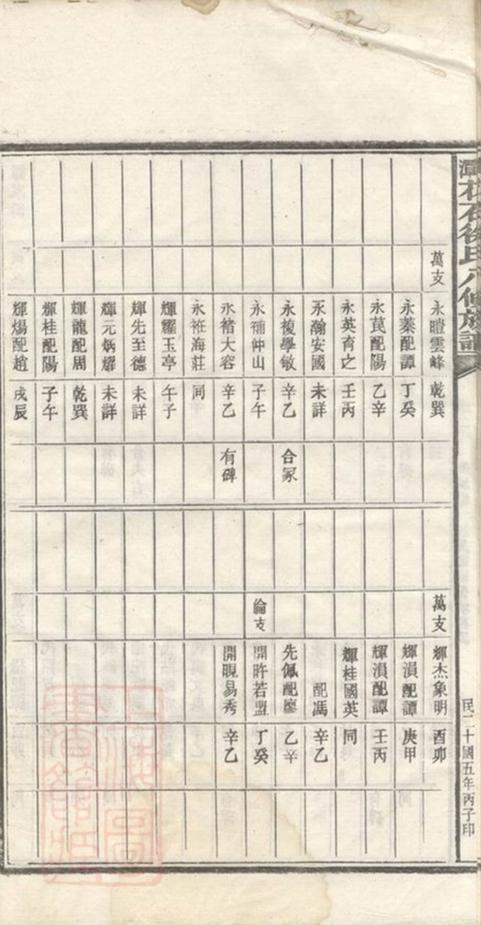 石徐氏八修族譜
民國二十五年丙子印
萬支
永暟雲峰 乾巽
永蓁配譚 丁癸
永萇配陽 乙辛
永英育之 壬丙
永瀚安國 未詳
永複學敏 辛乙 合冢
永補仲山 子午
永褚大容 辛乙 有碑
永袵海莊 同
輝耀玉亭 午子
輝先至德 未詳
輝元炳耀 未詳
輝龍配周 乾巽
輝桂配陽 子午
輝煬配趙 戌辰
萬支
輝杰象明 酉卯
輝溳配譚 庚甲
輝溳配譚 壬丙
輝桂國英 同
配馮 辛乙
先佩配廖 乙辛
綸支
開許若盟 丁癸
開覞易秀 辛乙